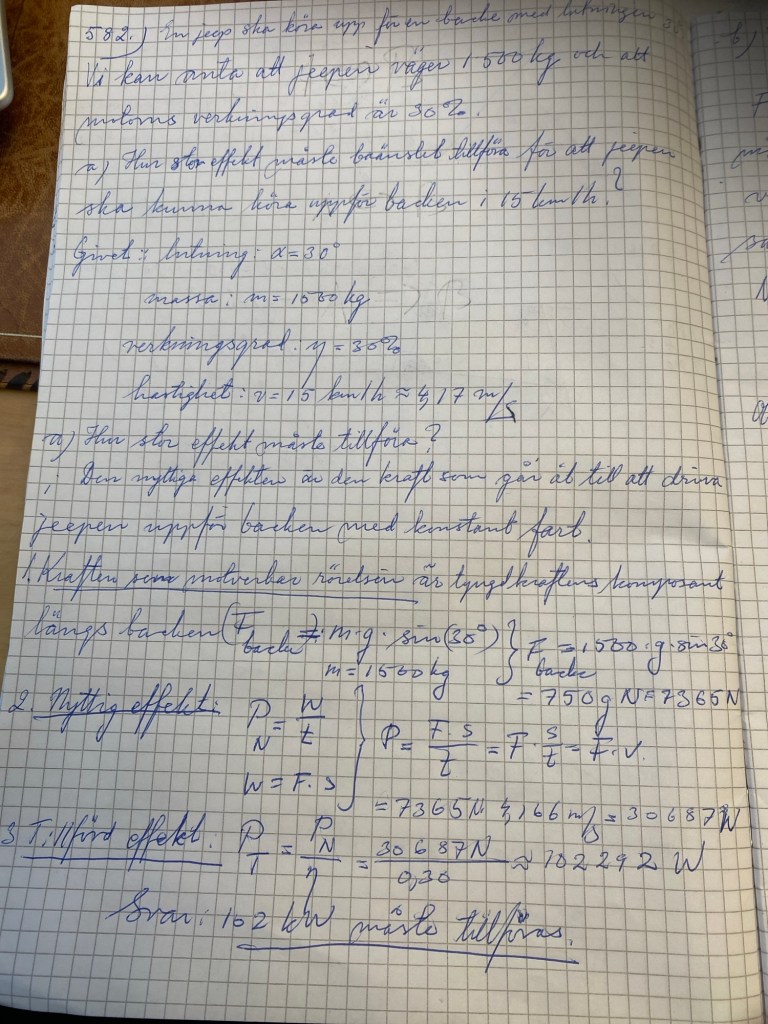 582.) En jeep ska köra upp för en backe med lutningen 30
Vi kan anta att jeepen väger 1500 kg och att
motorns verkningsgrad är 30%.
a) Hur stor effekt måste bränslet tillföra för att jeepen
ska kunna köra uppför backen i 15 km/h?
Givet: lutning: α = 30°
massa: m = 1500 kg
verkningsgrad: η = 30%
hastighet: v = 15 km/h ≈ 4,17 m/s
a) Hur stor effekt måste tillföra?
; Den nyttiga effekten är den kraft som går åt till att driva
jeepen uppför backen med konstant fart.
1. Kraften som motverkar rörelsen är tyngdkraftens komposant
längs backen (F backe) = m·g·sin(30°) } F backe = 1500·g·sin30°
m = 1500 kg
= 750g N = 7365N
2. Nyttig effekt: P_N = W/t } P = F·s/t = F·s/t = F·v.
W = F·s
= 7365N 4,166 m/s = 30687W
3 Tillförd effekt: P_T = P_N/η = 30687N/0,30 ≈ 102292 W
Svar: 102 kW måste tillföras.